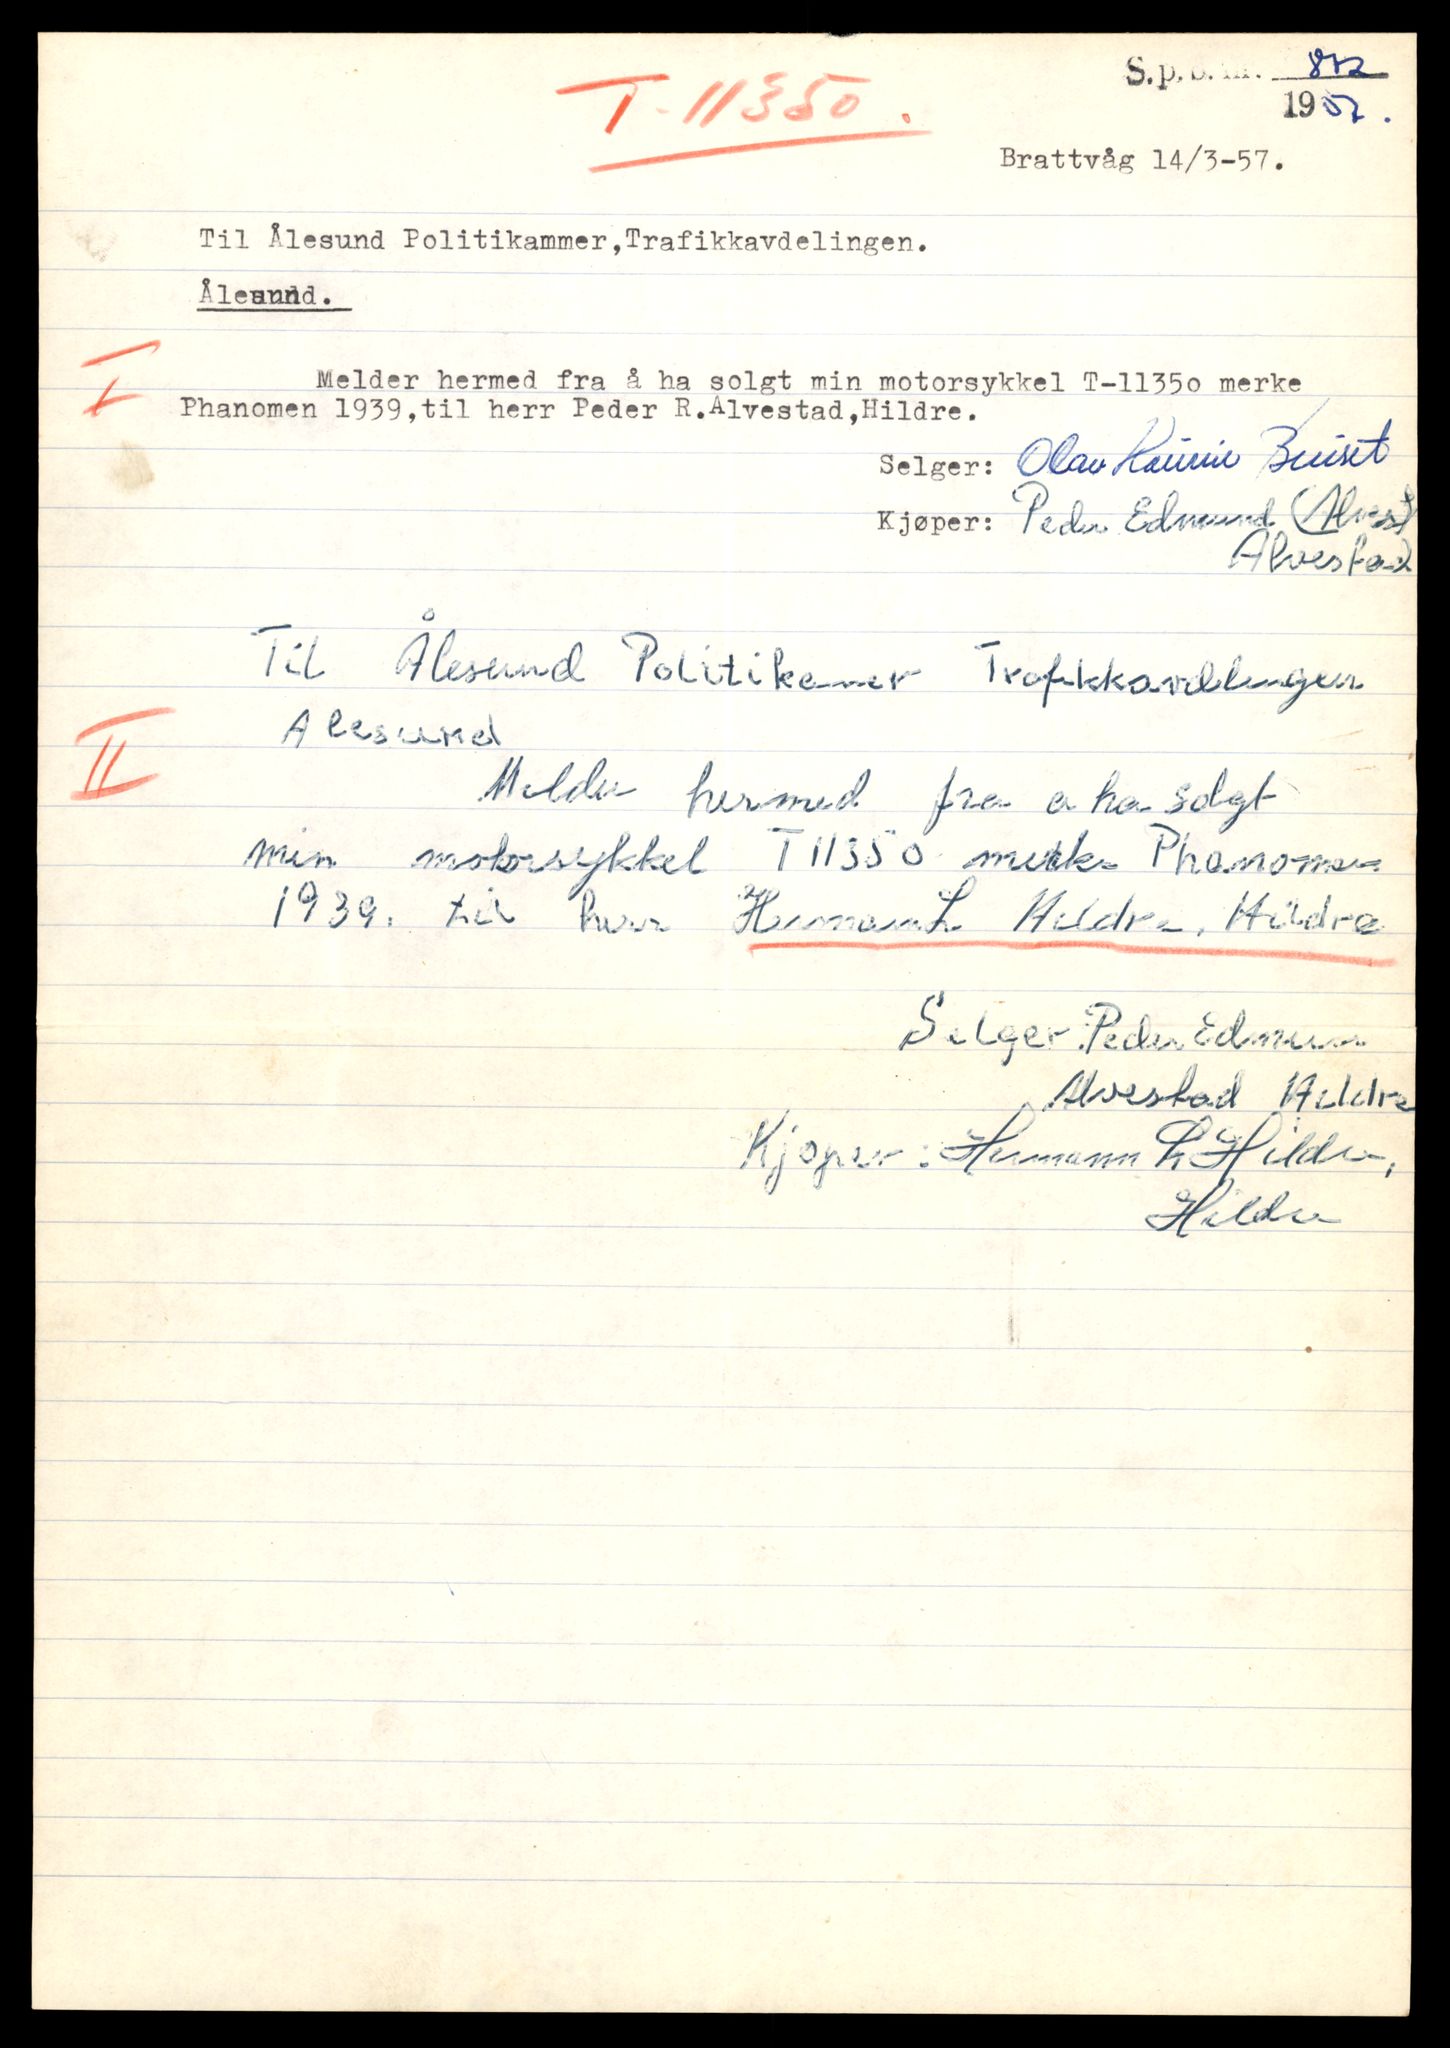 T-11350.
S.p.b.nr. 872
1957.
Brattvåg 14/3-57.
Til Ålesund Politikammer,Trafikkavdelingen.
Ålesund.
I
Melder hermed fra å ha solgt min motorsykkel T-1135o merke
Phanomen 1939,til herr Peder R.Alvestad,Hildre.
Selger: Olav
Kjøper: Peder Edmund (Alvest
Alvestad
Til Ålesund Politikamer Trafikkavdlingen
Alesund
II
Melder hermed fra a ha solgt
min motorsykkel T11350 merke Phanomen
1939. til herr Hermann L Hildre, Hildre
Selger: Peder Edmun
Alvestad Hildre
Kjøper: Hermann L Hildre,
Hildre